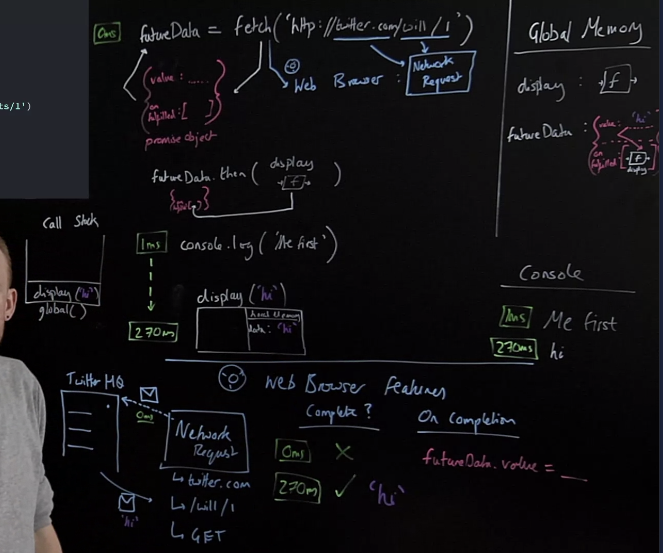 0ms futureData = fetch('http://twitter.com/will/1')
ts/1')
{value: ......
on fulfilled: [ ]}
promise object
Web Browser: Network Request
futureData.then( display f )
Call Stack
display('hi')
global()
1ms console.log('Me first')
270ms
display('hi')
local memory
data: 'hi'
Global Memory
display: f
futureData: {value: 'hi'
on fulfilled: [ f ]}
display
Console
1ms Me first
270ms hi
Web Browser Features
Twitter HQ
0ms
'hi'
Network Request
↳ twitter.com
↳ /will/1
↳ GET
Complete?
0ms X
270m ✓ 'hi'
On completion
futureData.value = __